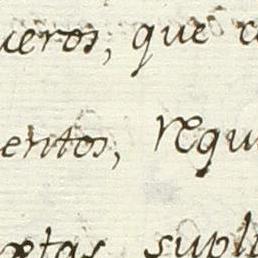 ueros, que c
entos, requ
xtas supli